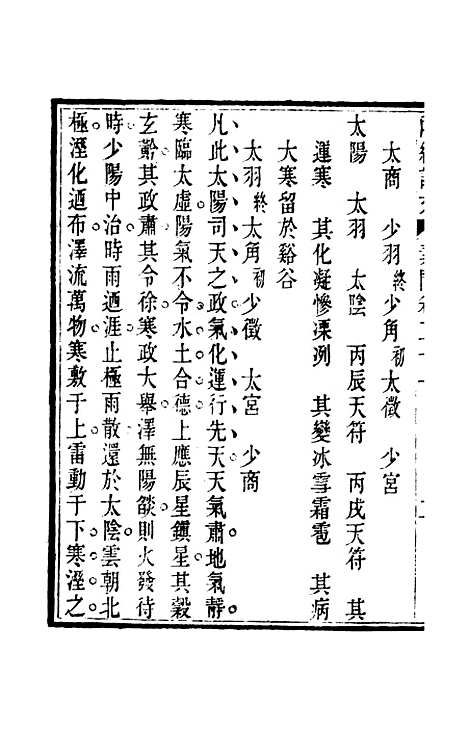 太商　少羽終　少角初　太徵　少宮
太陽　太羽　太陰　丙辰天符　丙戌天符　其
運寒　其化凝慘凓冽　其變冰雪霜雹　其病
大寒留於谿谷
太羽終　太角初　少徵　太宮　少商
凡此太陽司天之政氣化運行先天天氣肅地氣靜。
寒臨太虛陽氣不令水土合德上應辰星鎮星其穀
玄黅其政肅其令徐寒政大舉澤無陽燄則火發待
時少陽中治時雨迺涯止極雨散還於太陰雲朝北
極溼化迺布澤流萬物寒敷于上雷動于下寒溼之